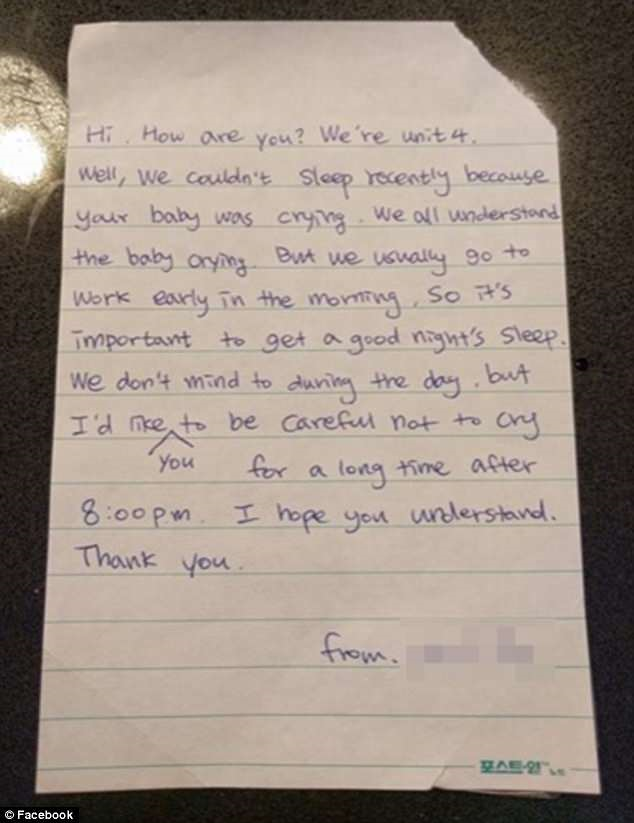 Hi. How are you? We're unit 4.
Well, we couldn't sleep recently because
your baby was crying. We all understand
the baby crying. But we usually go to
work early in the morning, so it's
important to get a good night's sleep.
We don't mind to during the day, but
I'd like to be careful not to cry
you for a long time after
8:00pm. I hope you understand.
Thank you.
from.
포스트-잇™ 노트
© Facebook